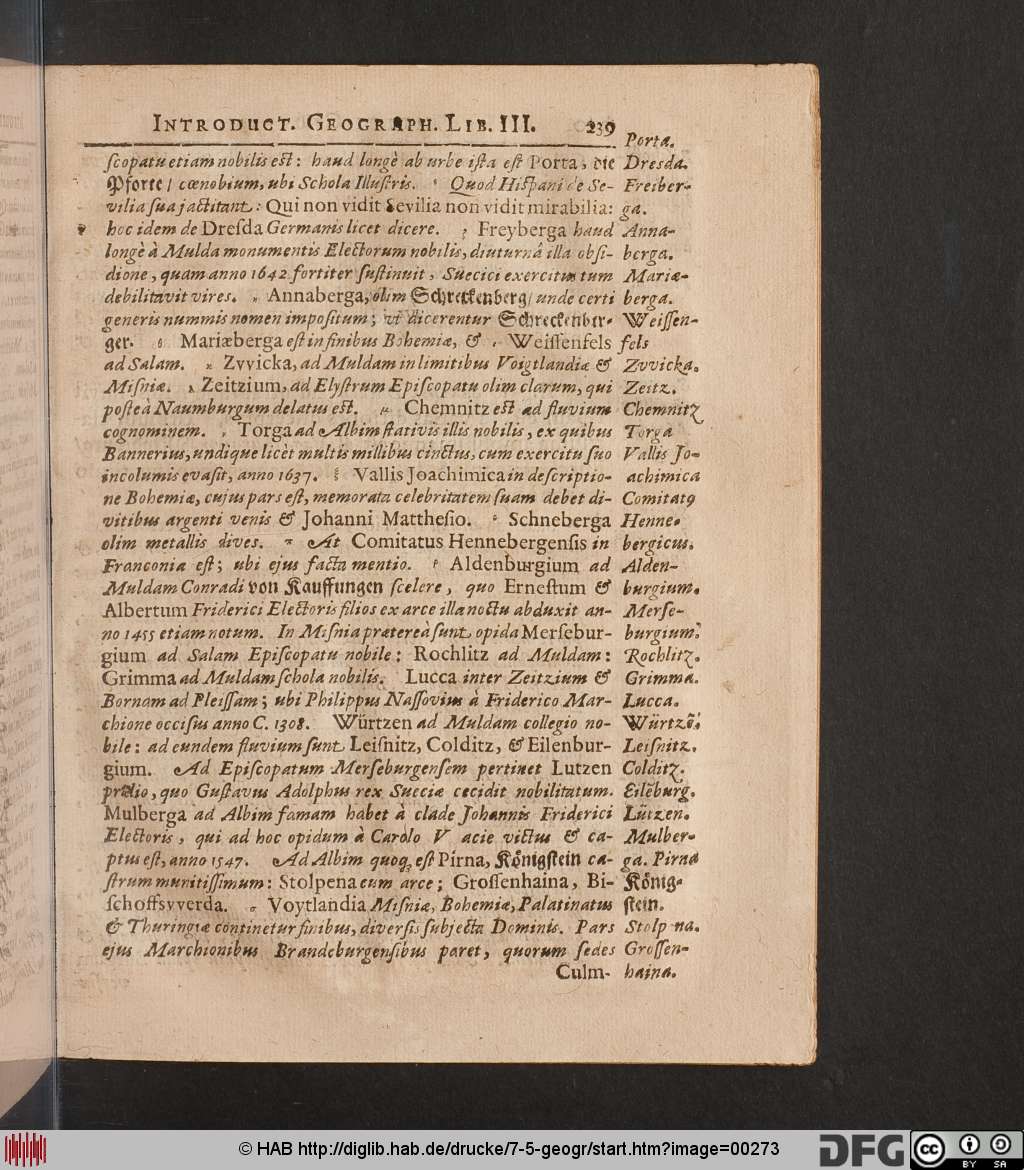 INTRODUCT. GEOGRAPH. LIB. III. 239
ſcopatu etiam nobilis eſt: haud longè ab urbe iſta eſt Porta, die
Pforte/ cœnobium, ubi Schola Illuſtris. Quod Hiſpani de Se-
vilia ſua jactitant: Qui non vidit Sevilia non vidit mirabilia:
hoc idem de Dreſda Germanis licet dicere. Freyberga haud
longè à Mulda monumentis Electorum nobilis, diuturnâ illa obſi-
dione, quam anno 1642 fortiter ſuſtinuit, Suecici exercitus tum
debilitavit vires. Annaberga, olim Schreckenberg/ unde certi
generis nummis nomen impoſitum; ut dicerentur Schreckenber-
ger. Mariæberga eſt in finibus Bohemiæ, & Weiſſenfels
ad Salam. Zvvicka, ad Muldam in limitibus Voigtlandiæ &
Miſniæ. Zeitzium, ad Elyſtrum Epiſcopatu olim clarum, qui
poſteà Naumburgum delatus eſt. Chemnitz eſt ad fluvium
cognominem. Torga ad Albim ſtativis illis nobilis, ex quibus
Bannerius, undique licèt multis millibus cinctus, cum exercitu ſuo
incolumis evaſit, anno 1637. Vallis Joachimica in deſcriptio-
ne Bohemiæ, cujus pars eſt, memorata celebritatem ſuam debet di-
vitibus argenti venis & Johanni Mattheſio. Schneberga
olim metallis dives. At Comitatus Hennebergenſis in
Franconia eſt; ubi ejus facta mentio. Aldenburgium ad
Muldam Conradi von Kauffungen ſcelere, quo Erneſtum &
Albertum Friderici Electoris filios ex arce illa noctu abduxit an-
no 1455 etiam notum. In Miſnia prætereà ſunt opida Merſebur-
gium ad Salam Epiſcopatu nobile: Rochlitz ad Muldam:
Grimma ad Muldam ſchola nobilis. Lucca inter Zeitzium &
Bornam ad Pleiſſam; ubi Philippus Naſſovius à Friderico Mar-
chione occiſus anno C. 1308. Würtzen ad Muldam collegio no-
bile: ad eundem fluvium ſunt Leiſnitz, Colditz, & Eilenbur-
gium. Ad Epiſcopatum Merſeburgenſem pertinet Lutzen
prælio, quo Guſtavus Adolphus rex Sueciæ cecidit nobilitatum.
Mulberga ad Albim famam habet à clade Johannis Friderici
Electoris, qui ad hoc opidum à Carolo V acie victus & ca-
ptus eſt, anno 1547. Ad Albim quoq; eſt Pirna, Königſtein ca-
ſtrum munitiſſimum: Stolpena cum arce; Groſſenhaina, Bi-
ſchoffsvverda. Voytlandia Miſniæ, Bohemiæ, Palatinatus
& Thuringiæ continetur finibus, diverſis ſubjecta Dominis. Pars
ejus Marchionibus Brandeburgenſibus paret, quorum ſedes
Culm-
Porta.
Dresda.
Freiber-
ga.
Anna-
berga.
Mariæ-
berga.
Weiſſen-
fels
Zvvicka.
Zeitz.
Chemnitz
Torga
Vallis Jo-
achimica
Comitatꝰ
Henne-
bergicus.
Alden-
burgium.
Merſe-
burgium.
Rochlitz.
Grimma.
Lucca.
Würtzē.
Leiſnitz.
Colditz.
Eilēburg.
Lützen.
Mulber-
ga. Pirna
König-
ſtein.
Stolpna.
Groſſen-
haina.
© HAB http://diglib.hab.de/drucke/7-5-geogr/start.htm?image=00273
DFG
cc
BY SA